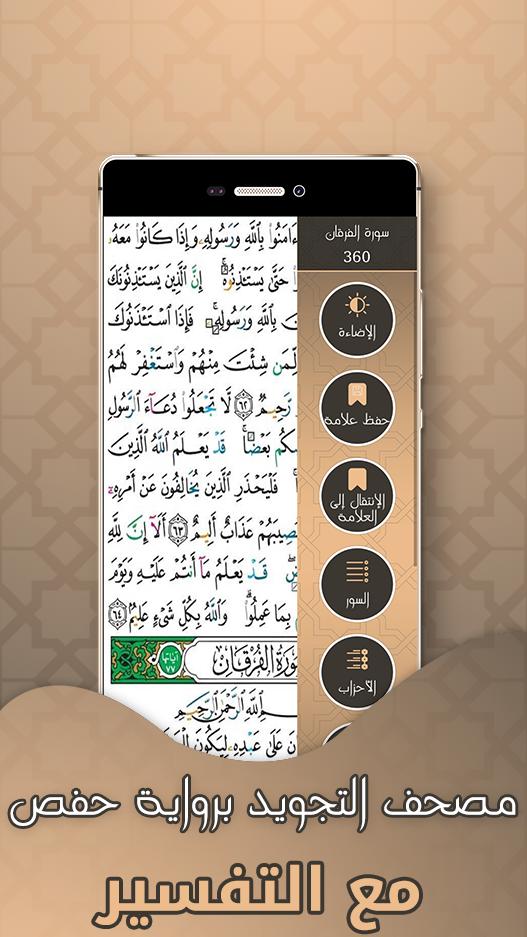 سورة الفرقان
360
الإضاءة
حفظ علامة
الإنتقال إلى
العلامة
السور
الأحزاب
ءَامَنُوا۟ بِٱللَّهِ وَرَسُولِهِۦ وَإِذَا كَانُوا۟ مَعَهُۥ
حَتَّىٰ يَسْتَـْٔذِنُوهُ ۚ إِنَّ ٱلَّذِينَ يَسْتَـْٔذِنُونَكَ
بِٱللَّهِ وَرَسُولِهِۦ ۚ فَإِذَا ٱسْتَـْٔذَنُوكَ
لِّمَن شِئْتَ مِنْهُمْ وَٱسْتَغْفِرْ لَهُمُ
رَّحِيمٌ ٦٢ لَّا تَجْعَلُوا۟ دُعَآءَ ٱلرَّسُولِ
بَعْضًا ۚ قَدْ يَعْلَمُ ٱللَّهُ ٱلَّذِينَ
فَلْيَحْذَرِ ٱلَّذِينَ يُخَالِفُونَ عَنْ أَمْرِهِۦٓ
عَذَابٌ أَلِيمٌ ٦٣ أَلَآ إِنَّ لِلَّهِ
قَدْ يَعْلَمُ مَآ أَنتُمْ عَلَيْهِ وَيَوْمَ
بِمَا عَمِلُوا۟ ۗ وَٱللَّهُ بِكُلِّ شَىْءٍ عَلِيمٌۢ ٦٤
سُورَةُ الفُرْقَانِ آياتها ٧٧
ٱللَّهِ ٱلرَّحْمَٰنِ ٱلرَّحِيمِ
عَلَىٰ عَبْدِهِۦ لِيَكُونَ
مصحف التجويد برواية حفص
مع التفسير